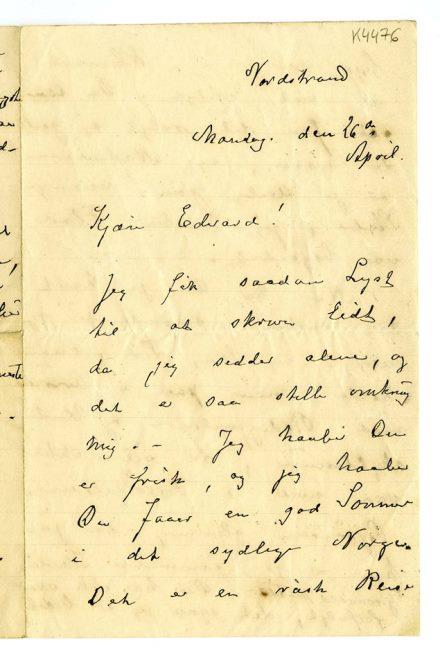 K4476
Nordstrand
Mandag. den 26de
April.
Kjære Edvard!
Jeg fik saadan Lyst
til at skrive lidt,
da jeg sidder alene, og
det er saa stille omkring
mig. – Jeg haaber Du
er frisk, og jeg haaber
Du faaer en god Sommer
i det sydlige Norge.
Det er en rask Reise